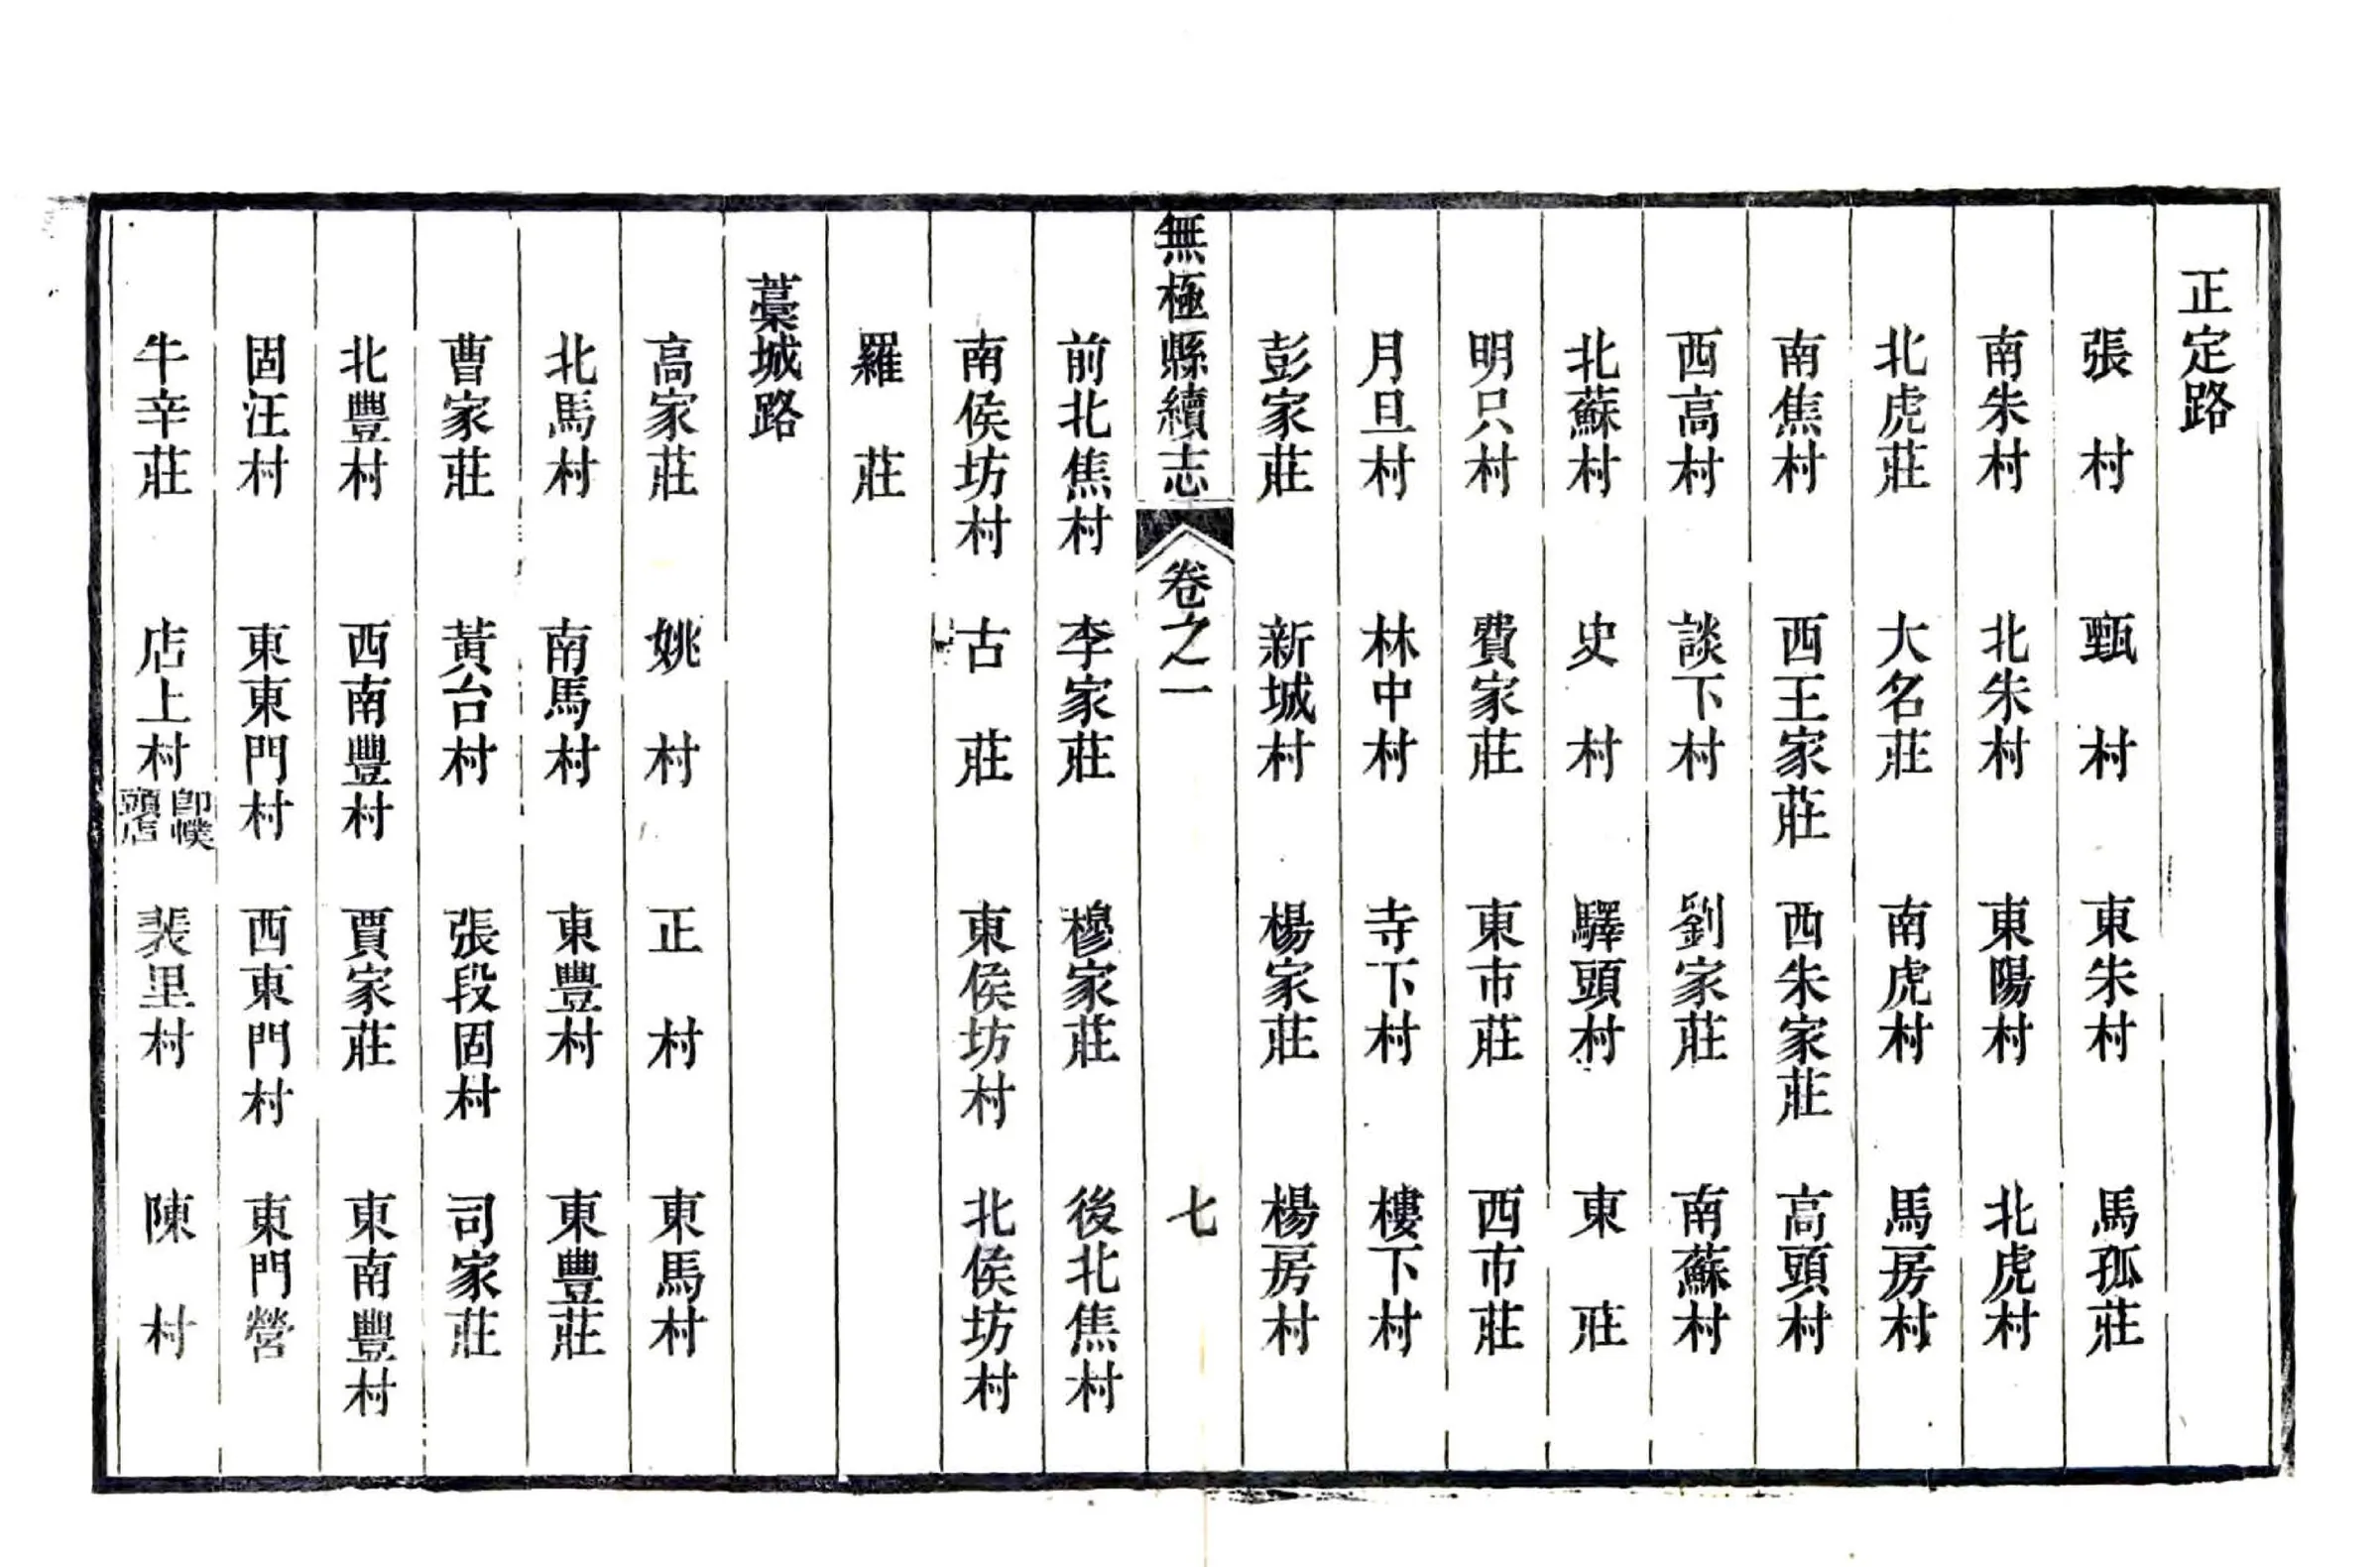 正定路
張村 甄村 東朱村 馬孤莊
南朱村 北朱村 東陽村 北虎村
北虎莊 大名莊 南虎村 馬房村
南焦村 西王家莊 西朱家莊 高頭村
西高村 談下村 劉家莊 南蘇村
北蘇村 史村 驛頭村 東莊
明只村 費家莊 東市莊 西市莊
月旦村 林中村 寺下村 樓下村
彭家莊 新城村 楊家莊 楊房村
無極縣續志 卷之一 七
前北焦村 李家莊 穆家莊 後北焦村
南侯坊村 古莊 東侯坊村 北侯坊村
羅莊
藁城路
高家莊 姚村 正村 東馬村
北馬村 南馬村 東豐村 東豐莊
曹家莊 黃台村 張段固村 司家莊
北豐村 西南豐村 賈家莊 東南豐村
固汪村 東東門村 西東門村 東門營
牛辛莊 店上村 即幞頭店 裴里村 陳村